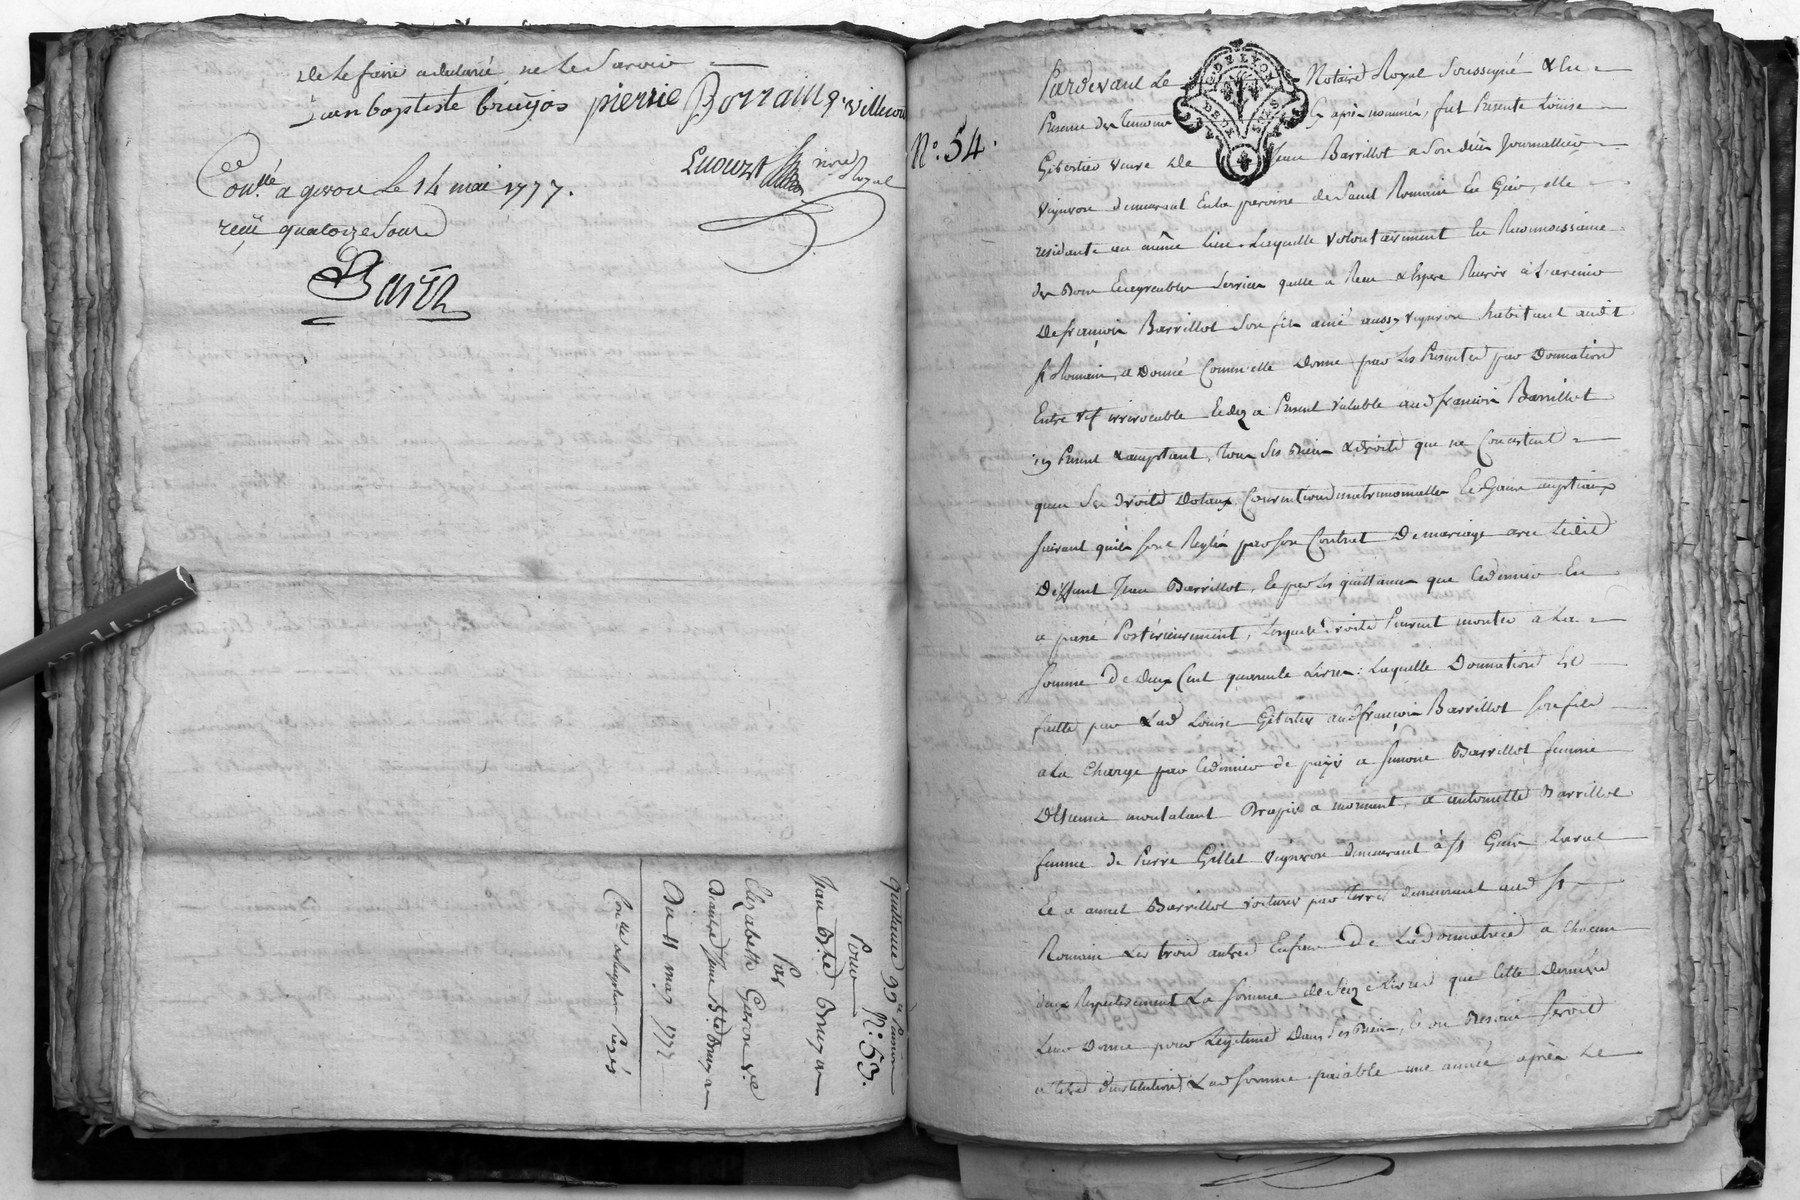 de le faire a declaré ne le Savoir
Jean baptiste bruyas pierre Borrain
Contlé a givors Le 14 mai 1777.
reçu quatorze Sous
Barth
nre Royal
quittance
N° 53.
Pour
Jean B.te Bruyas
Par
Elizabette Garon v.e
D'autre Jean B.te Bruyas
Du 11 may 1777
N° 54.
G. DE LYON
Pardevant Le Notaire Royal Soussigné & En
Presence des temoins cy après nommés, fut Presente Loüise
Gibertier veuve de Jean Barrillot a Son décès Journallier
vigneron demeurant En la paroisse de Saint Romain En Gier, elle
residante au même lieu. Laquelle volontairement En Reconnoissance
des Bons Enagreables Services quelle a Reçu & Espere Recevoir à L'avenir
De françois Barrillot Son fils ainé aussy vigneron habitant audit
St Romain, a Donné Comm'elle Donne par les Presentes par Donnation
Entre vif irrevocable Et dez a Present valable aud françois Barrillot
icy Present & acceptant, Tous Ses Biens & droits que ne Consistent
quen Ses droits Dotaux Conventions matrimonialles Et Gains nuptiaux
Suivant quils sont Reglés par son Contrat De mariage avec Ledit
Deffunt Jean Barrillot, Et par les quittances que Ce dernier En
a passé Postérieurement, Lesquels droits Peuvent monter a La
Somme De deux Cent quarante Livres: Laquelle Donnation Est
faitte par Lad Loüise Gibertier aud françois Barrillot Son fils
a La Charge par Ce dernier de payer a Simone Barrillot femme
D'Etienne montalant Drapier a mornant, a antoinette Barrillot
femme de Pierre Gillet vigneron demeurant à St Genis Laval
Et a annet Barrillot voiturier par terre demeurant aud St
Romain Les trois autres Enfans De La donnatrice a Chacun
deux Respectivement La Somme de Seize Livres que Cette Derniere
Leur Donne pour Légitime Dans Ses Biens, Et ou Besoin Seroit
a titre d'institution, Lad Somme païable une année après Le